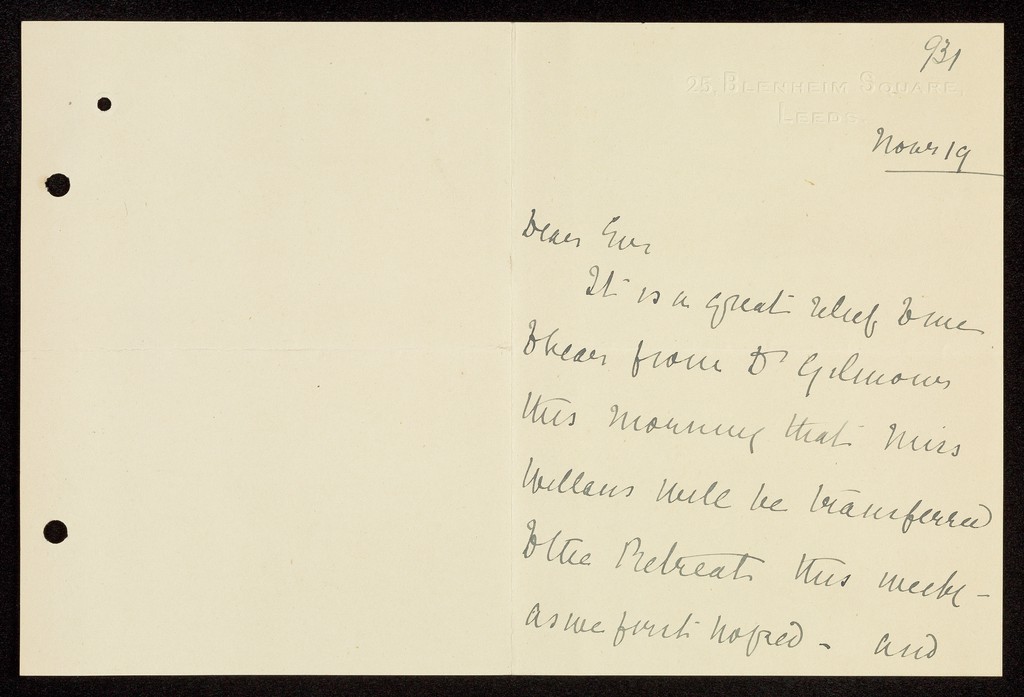 931
25, BLENHEIM SQUARE,
LEEDS.
Novr 19
Dear Sir
It is a great relief to me
to hear from Dr Gilmour
this morning that Miss
Willans will be transferred
to the Retreat this week -
as we first hoped - and